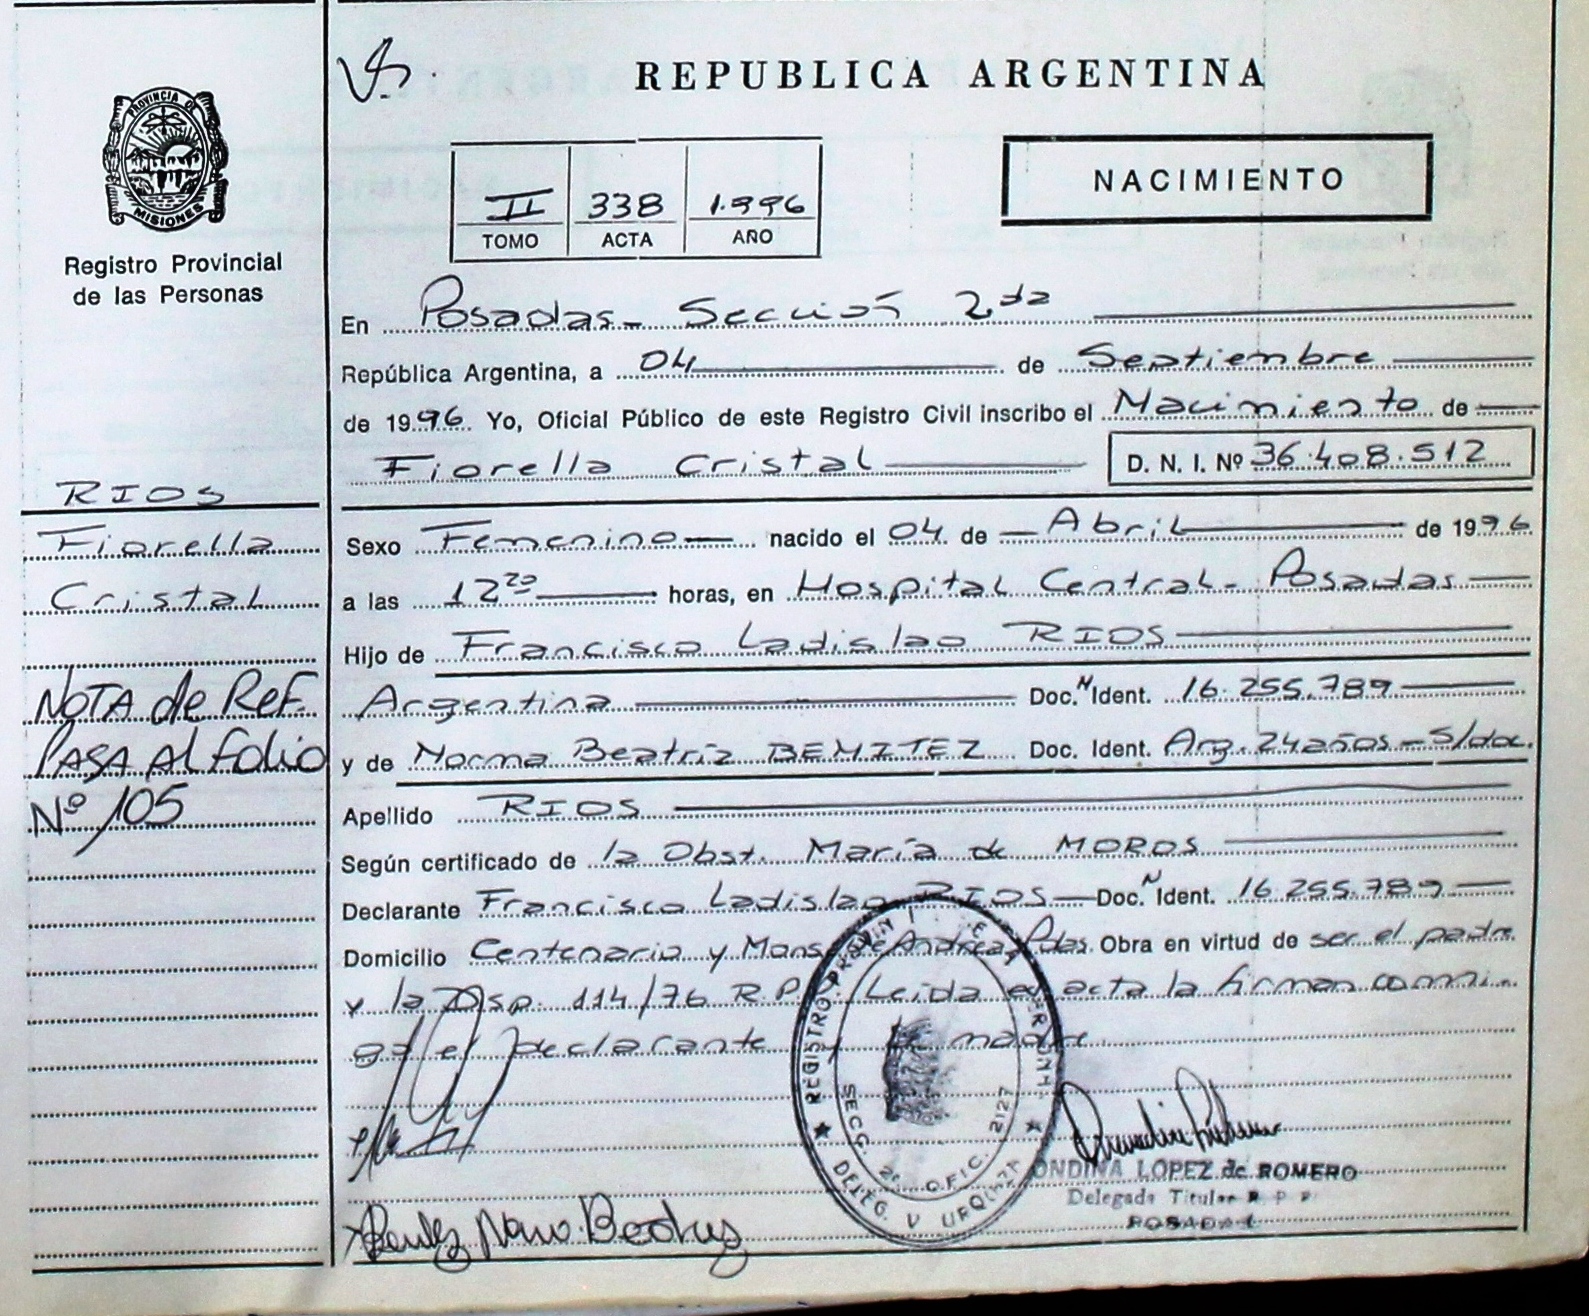 PROVINCIA DE
MISIONES
Registro Provincial
de las Personas
RIOS
Fiorella
Cristal
NOTA de Ref.
PASA Al folio
Nº 105
REPUBLICA ARGENTINA
II 338 1.996
TOMO ACTA AÑO
NACIMIENTO
En Posadas - Sección 2da
República Argentina, a 04 de Septiembre
de 1996. Yo, Oficial Público de este Registro Civil inscribo el Nacimiento de
Fiorella Cristal D. N. I. Nº 36.408.512
Sexo Femenino nacido el 04 de Abril de 1996
a las 12 20 horas, en Hospital Central - Posadas
Hijo de Francisco Ladislao RIOS
Argentina Doc. N Ident. 16.255.789
y de Norma Beatriz BENITEZ Doc. Ident. Arg. 24 años - S/doc.
Apellido RIOS
Según certificado de la Obst. María de MOROS
Declarante Francisco Ladislao RIOS Doc. N Ident. 16.255.789
Domicilio Centenario y Mons. de Andrea Pdas. Obra en virtud de ser el padre
y la Disp. 114/76 R.P. Leida el acta la firman conmi-
go el declarante y la madre.
REGISTRO
SECC. 2ª OFIC. 2127
DELEG. V URQUIZA
ONDINA LOPEZ de ROMERO
Delegada Titular R P P
POSADAS